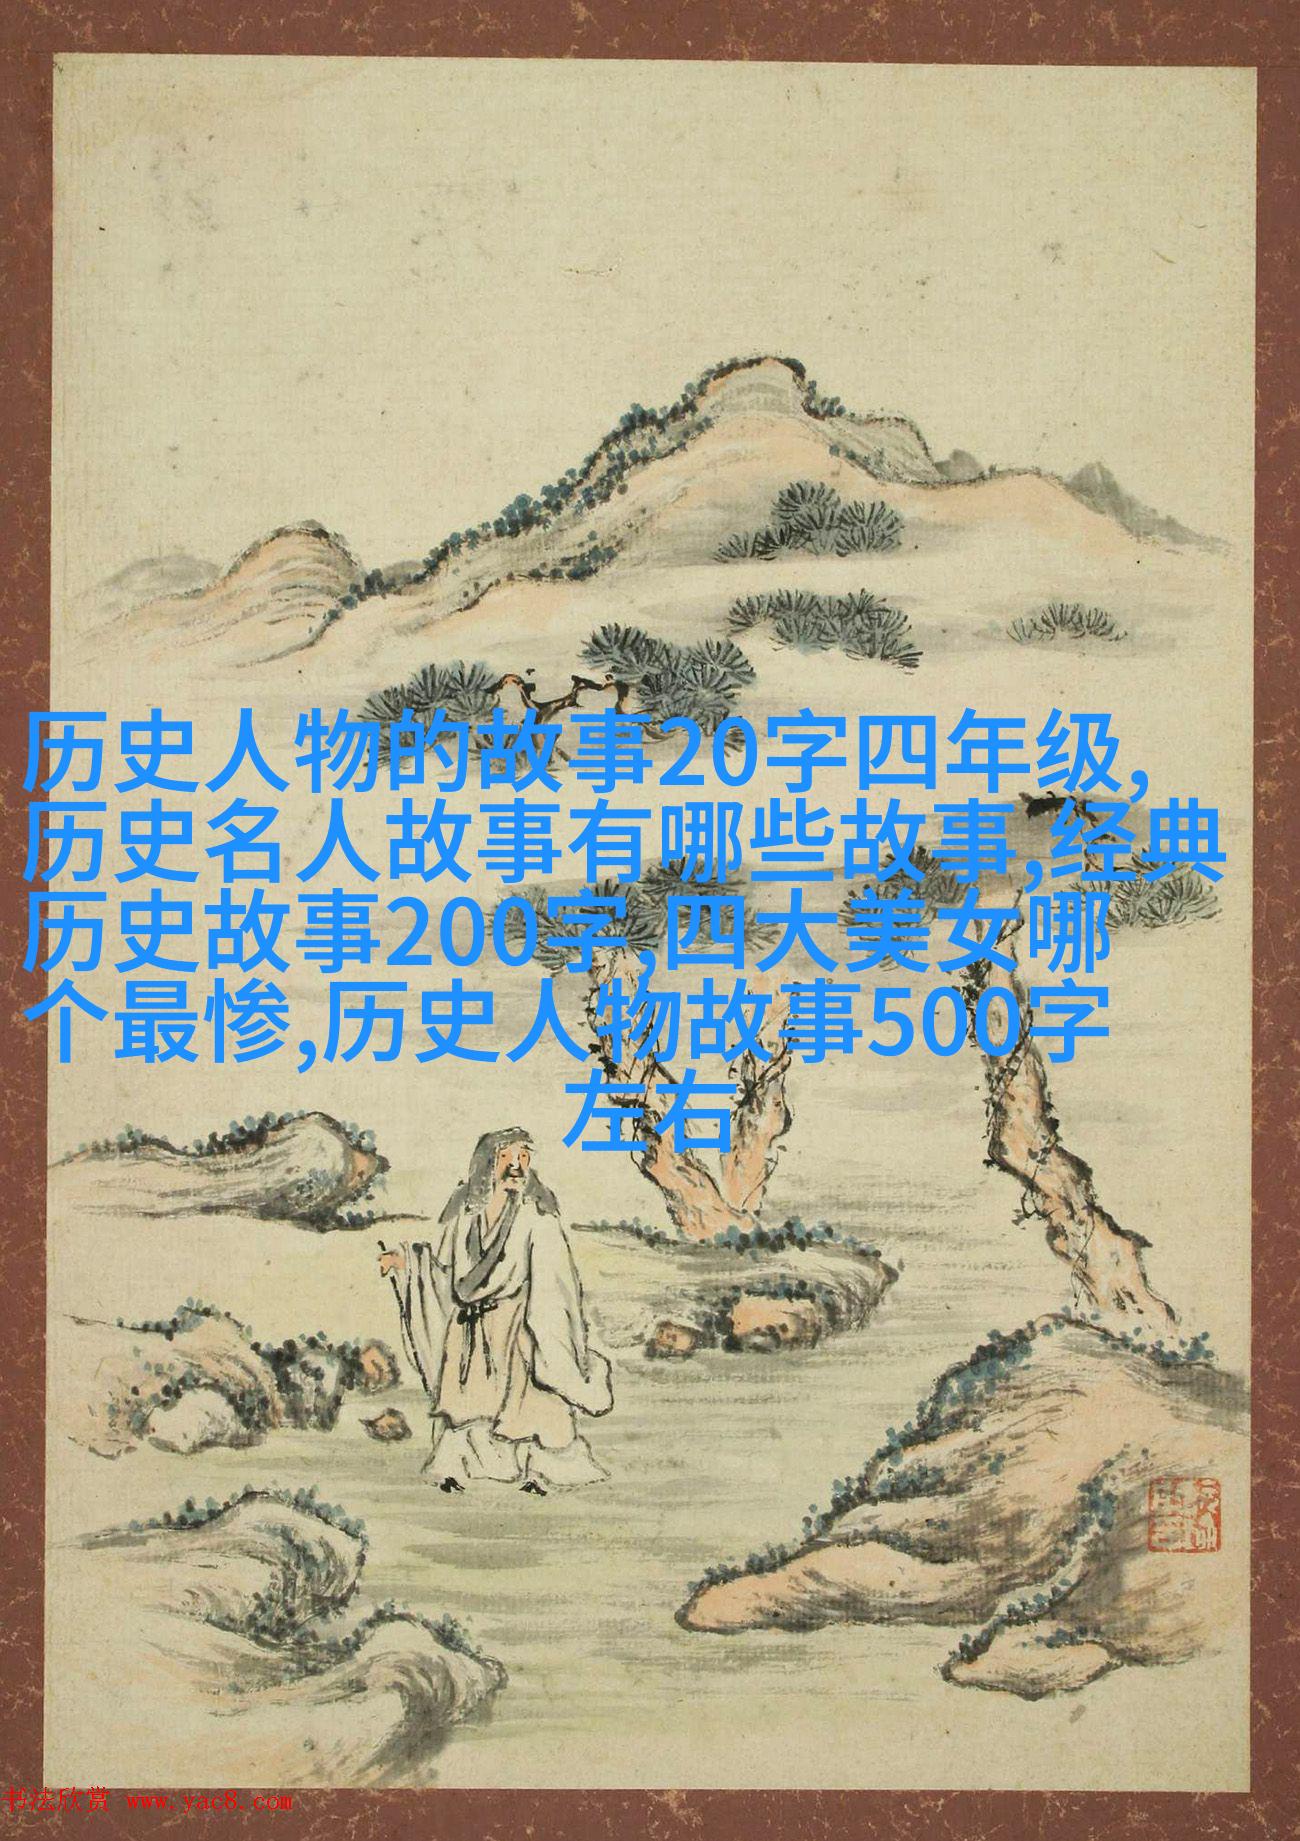 历史人物的故事20字四年级,
历史名人故事有哪些故事,经典
历史故事200字,四大美女哪
个最惨,历史人物故事500字
左右
书法欣赏 www.yac8.com